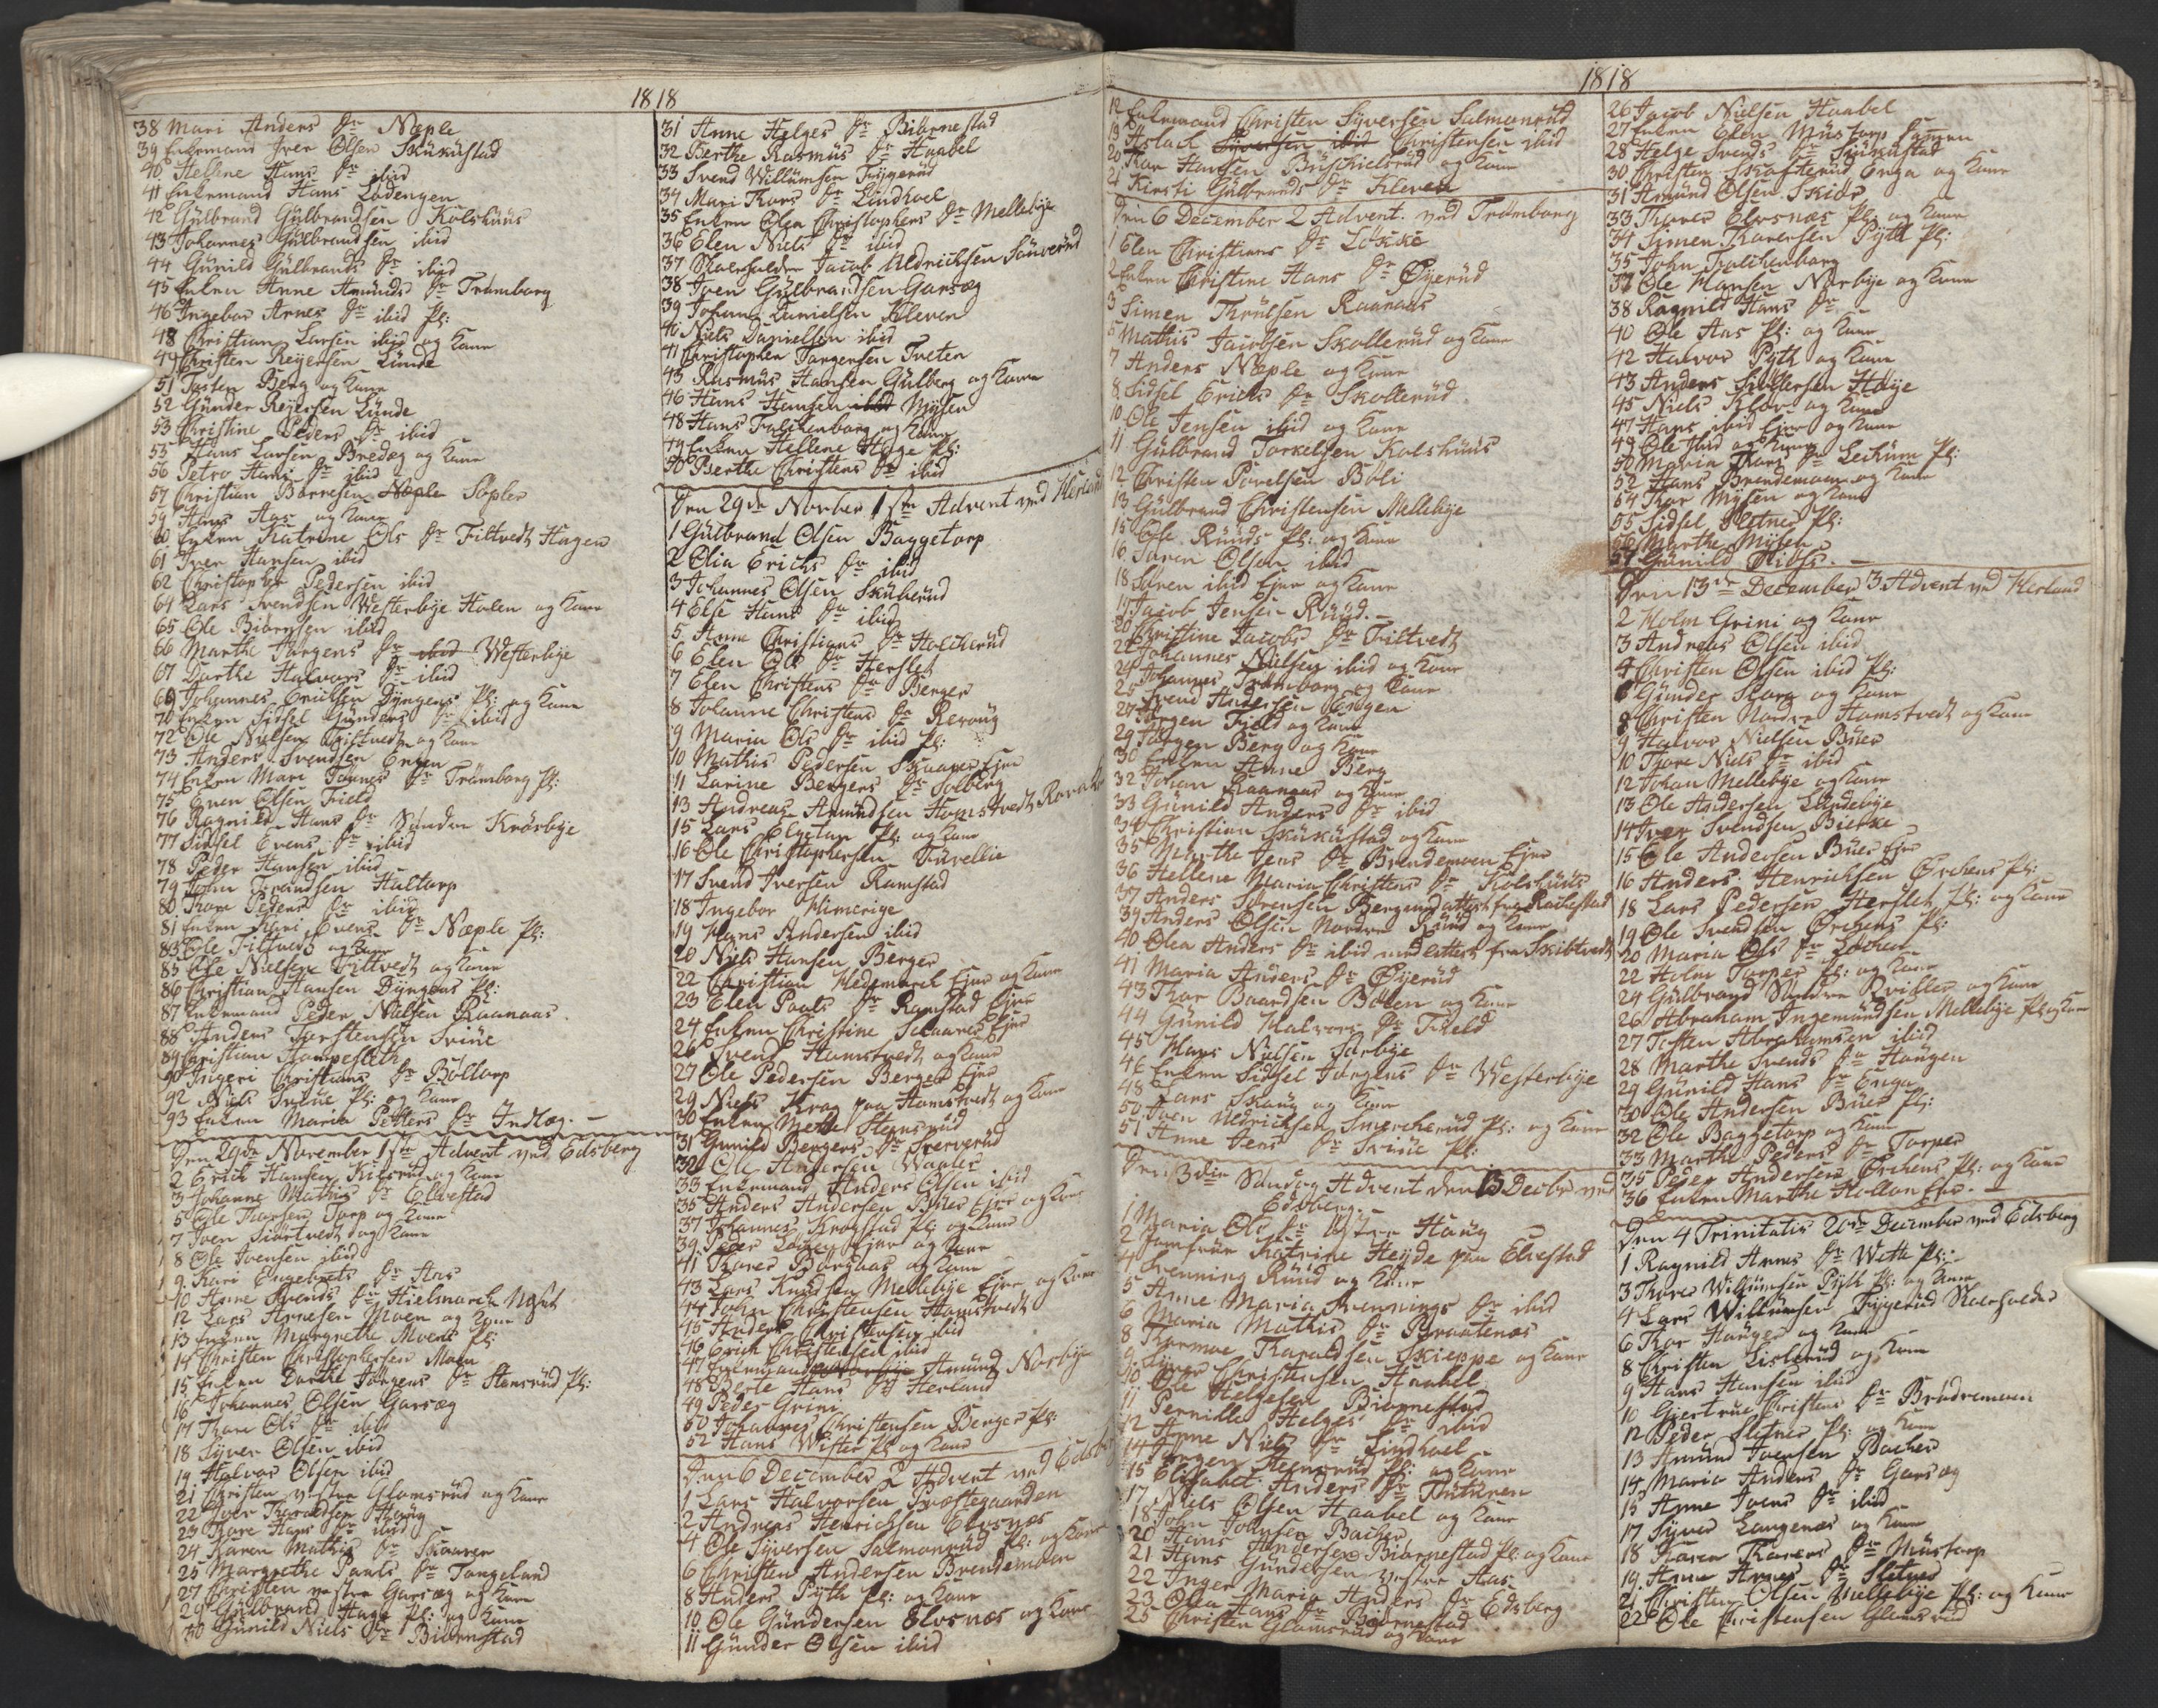 1818
38 Mari Anders Dr Næple
39 Enkemand Iver Olsen Skükustad
40 Hellene Hans Dr ibid
41 Enkemand Hans Lodengen
42 Gülbrand Gülbrandsen Kolshuus
43 Johannes Gülbrandsen ibid
44 Günild Gülbrands Dr ibid
45 Enken Anne Amunds Dr Trømborg
46 Ingebor Arnes Dr ibid Pl:
48 Christian Larsen ibid og Kone
49 Christen Reyersen Lünde
51 Tosten Berg og Kone
52 Günder Reyersen Lünde
53 Christine Peders Dr ibid
55 Hans Larsen Bredeg og Kone
56 Petro Hans Dr ibid
57 Christian Børresen Næple Søpler
59 Hans Aas og Kone
60 Enken Katrine Ols Dr Filtvedt Hagen
61 Iver Hansen ibid
62 Christopher Pedersen ibid
64 Lars Svendsen Westerbye Holen og Kone
65 Ole Biørnsen ibid
66 Marthe Jørgens Dr ibid Westerbye
67 Dorthe Halvors Dr ibid
69 Johannes Ericksen Dyngens Pl: og Kone
70 Enken Sidsel Günders Dr ibid
72 Ole Nielsen Filtvedt og Kone
73 Anders Svendsen Engen
74 Enken Mari Tønnes Dr Trømborg Pl:
75 Even Olsen Field
76 Ragnild Hans Dr Søndre Krosbye
77 Sidsel Evens Dr ibid
78 Peder Hansen ibid
79 John Trondsen Haltorp
80 Thore Peders Dr ibid
81 Enken Kari Evens Dr Næple Pl:
83 Ole Filtvedt og Kone
85 Ole Nielsen Filtvedt og Kone
86 Christian Hansen Dyngens Pl:
87 Enkemand Peder Nielsen Raanaas
88 Anders Torstensen Sviüe
89 Christian Stompesletth
90 Ingeri Christians Dr Boltorp
92 Niels Sviüe Pl: og Kone
93 Enken Maria Petters Dr Indlæg. —
Den 29de November 1ste Advent ved Edsberg
2 Erich Hansen Kilsrud og Kone
3 Johanne Mathis Dr Elvestad
5 Ole Thorsen Torp og Kone
7 Joen Siørtvedt og Kone
8 Ole Joensen ibid
9 Kari Engebrets Dr Aas
10 Anne Svends Dr Hielmarck
12 Lars Arnesen Moen og Kone
13 Enken Margrethe Moens Pl:
14 Christen Christophersen Moen
15 Enken Dorthe Jørgens Dr Stensrud Pl:
16 Johannes Olsen Garsæg
17 Thore Ols Dr ibid
18 Syver Olsen ibid
19 Halvor Olsen ibid
21 Christen vestre Glomsrüd og Kone
22 Iver Thoraldsen Haüg
23 Thore Hans Dr ibid
24 Karen Mathis Dr Skaaren
25 Margrethe Pauls Dr Tangeland
27 Christen vestre Garsæg og Kone
29 Gülbrand Haga Pl: og Kone
30 Günild Niels Dr Biørnestad
31 Anne Helges Dr Biørnestad
32 Berthe Rasmus Dr Haabel
33 Svend Willümsen Tryggerud
34 Mari Thors Dr Lindhoel
35 Enken Olea Christophers Dr Mellebye
36 Elen Niels Dr ibid
37 Skoeholder Jacob Uldrichsen Saüerüd
38 Joen Gülbrandsen Garsæg
39 Johans Danielsen Kleven
40 Niels Danielsen ibid
41 Christopher Jørgensen Tveten
43 Rasmüs Hansen Gülberg og Kone
46 Hans Hansen ibid Mysen
48 Hans Falckenborg og Kone
49 Enken Hellene Helge Pl:
50 Berthe Christens Dr ibid
Den 29de Novber 1ste Advent ved Herland
1 Gülbrand Olsen Baggetorp
2 Olia Erichs Dr ibid
3 Johannes Olsen Skuherüd
4 Else Hans Dr ibid
5 Anne Christians Dr Holckerud
6 Elen Ols Dr Herslet
7 Elen Christens Dr Berger
8 Johanne Christens Dr Revoug
9 Maria Ols Dr ibid Pl:
10 Mathis Pedersen Skaaner Eier
11 Larine Bergers Dr Solberg
13 Andreas Amundsen Homstvedt
15 Lars Elgetun Pl: og Kone
16 Ole Christophersen
17 Svend Iversen Ramstad
18 Ingebor Himerige
19 Hans Andersen ibid
20 Niels Hansen Berger
22 Christian Hedemarck Eier og Kone
23 Elen Paals Dr Ramstad Eier
24 Enken Christine Skaarer Eier
26 Svend Hamstvedt og Kone
27 Ole Pedersen Berger Eier
29 Niels Krog paa Homstvedt og Kone
30 Enken Mette Stensrud
31 Gunild Bergers Dr
32 Ole Andersen
33 Enkemand Anders Olsen ibid
35 Anders Andersen Büer Eier og Kone
37 Johannes Krogstad Pl: og Kone
39 Peder Løken Eier og Kone
41 Thorer Borgaas og Kone
43 Lars Knudsen Mellebye Eier og Kone
44 John Christensen Hamstvedt
45 Anders Christensen ibid
46 Erich Christensen ibid
47 Enkemand Amund Norbye
48 Berte Hans Dr Herland
49 Peder Grini
50 Johannes Christensen Berger Pl:
52 Hans Wister Pl: og Kone
Den 6 December 2 Advent ved Edsberg
1 Lars Halvorsen Prestegaarden
2 Andreas Henrichsen Elvsnæs
4 Ole Syversen Salmonrud Pl: og Kone
6 Christen Andersen Brendemoen
8 Anders Pyth Pl: og Kone
10 Ole Gündersen Elvsnæs og Kone
11 Günder Olsen ibid
1818
12 Enkemand Christen Syversen Salmonrüd
19 Aslach Syversen ibid Christensen ibid
20 Thor Hansen Buschielrud og Kone
21 Kirsti Gülbrands Dr Kleven
Den 6 December 2 Advent. ved Trømborg
1 Elen Christians Dr Løkke
2 Enken Christine Hans Dr Øyerüd
3 Simen Thrülsen Raanaas
5 Mathis Jacobsen Skollerüd og Kone
7 Anders Næple og Kone
8 Sidsel Erichs Dr Skollerüd
10 Ole Jensen ibid og Kone
11 Gülbrand Torkelsen Kolshuus
12 Christen Povelsen Boli
13 Gülbrand Christensen Mellebye
15 Ole Rüüds Pl: og Kone
16 Søren Olsen ibid
18 Søren ibid Eier og Kone
19 Jacob Jensen Rüüd. —
20 Christine Jacobs Dr Filtvedt
22 Johannes Nielsen ibid og Kone
24 Johannes Trømborg og Kone
25 Svend Andersen Engen
27 Jørgen Field og Kone
29 Jørgen Berg og Kone
30 Enken Anne Berg
32 Johan Raanaas og Kone
33 Günild Anders Dr ibid
34 Christian Skükustad og Kone
35 Marthe Jens Dr Brendemoen Eier
36 Hellene Maria Christens Dr Kolshuus
37 Anders Sørensen Bergerud attest fra Rackestad
39 Anders Olsen Nordre Rüud og Kone
40 Olea Anders Dr ibid med attest fra Skibtvedt
41 Maria Anders Dr Øyerüd
43 Thor Baardsen Bølen og Kone
44 Günild Halvors Dr Field
45 Hans Nielsen Sørbye
46 Enken Sidsel Jørgens Dr Westerbye
48 Lars Skaug og Kone
50 Iven Uldrichsen Smerckerud Pl: og Kone
51 Anne Jens Dr Sviüe Pl:
Den 3die Søndag Advent den 13 Decbr ved
Edsberg. —
1 Maria Ols Dr Østre Haüg
2 Jomfrue Katrine Heyde paa Elvestad
4 Svenning Rüüd og Kone
5 Anne Maria Svennings Dr ibid
6 Maria Mathis Dr Braatenæs
8 Thormoe Thoraldsen Skieppe og Kone
9 Syver Christensen Haabel
10 Ole Helgesen Biørnestad
11 Pernille Helges Dr ibid
12 Anne Niels Dr Lindhoel
14 Jørgen Steensrüd Pl: og Kone
15 Elisabet Anders Dr
17 Niels Olsen Haabel og Kone
18 John Johnsen Bacher
20 Hans Andersen Biørnestad Pl: og Kone
21 Hans Gündersen vestre Aas
22 Inger Maria Anders Dr Edsberg
23 Olea Hans Dr Biørnestad
25 Christen Glomsrüd og Kone
26 Jacob Nielsen Haabel
27 Enken Elen Müstorp
28 Helge Svends Dr Skükustad
30 Christen Skofterüd Enga og Kone
31 Amünd Olsen Skiør
33 Thorer Elvesnæs Pl: og Kone
34 Simen Thoresen Pyth Pl:
35 John Falckenborg
37 Ole Hansen Norbye og Kone
38 Ragnild Hans Dr
40 Ole Aas Pl: og Kone
42 Halvor Pyth og Kone
43 Anders Siøllersen Høye
45 Niels Kløv og Kone
47 Hans ibid Eier og Kone
49 Ole ibid og Kone
50 Maria Thors Dr Leckum Pl:
52 Hans Brendemoen og Kone
54 Thor Mysen og Kone
55 Sidsel Sletner Pl:
56 Marthe Mysen
57 Günild —
Den 13de December 3 Advent ved Herland
2 Holm Grini og Kone
3 Andreas Olsen ibid
4 Christen Olsen ibid Pl:
6 Günder Skorg og Kone
8 Christen Nordre Hamstvedt og Kone
9 Halvor Nielsen Büer
10 Thore Niels Dr ibid
12 Johan Mellebye og Kone
13 Ole Andersen Lundebye
14 Iver Svendsen Bierke
15 Ole Andersen Büer Eier
16 Anders Henrichsen Ørchens Pl:
18 Lars Pedersen Herslet Pl: og Kone
19 Ole Svendsen Ørchens Pl:
20 Maria Ols Dr Løchen
22 Holm Torper Pl: og Kone
24 Gülbrand Søndre og Kone
26 Abraham Ingemündsen Mellebye Pl: og Kone
27 Tosten Abrahamsen ibid
28 Marthe Svends Dr Haügen
29 Günild Hans Dr Enga
30 Ole Andersen Büer Pl:
32 Ole Baggetorp og Kone
33 Marthe Peders Dr Torper
35 Peder Andersen Ørchens Pl: og Kone
36 Enken Marthe Hollen Eie. —
Den 4 Trinitatis 20de December ved Edsberg
1 Ragnild Arnes Dr Wette Pl:
3 Thorer Willümsen Pyth Pl: og Kone
4 Lars Willumsen Tryggerud Skoeholder
6 Thor Haüger og Kone
8 Christen Lislerüd og Kone
9 Hans Hansen ibid
10 Giertrue Christens Dr Brødremoen
12 Peder Sletner Pl: og Kone
13 Amünd Joensen Bacher
14 Maria Anders Dr Garsæg
15 Anne Joens Dr ibid
17 Syver Langenæs og Kone
18 Karen Thorers Dr Müstorp
19 Anne Arnes Dr Sletner
21 Christen Olsen Mellebye Pl: og Kone
22 Ole Christensen Glomsrud